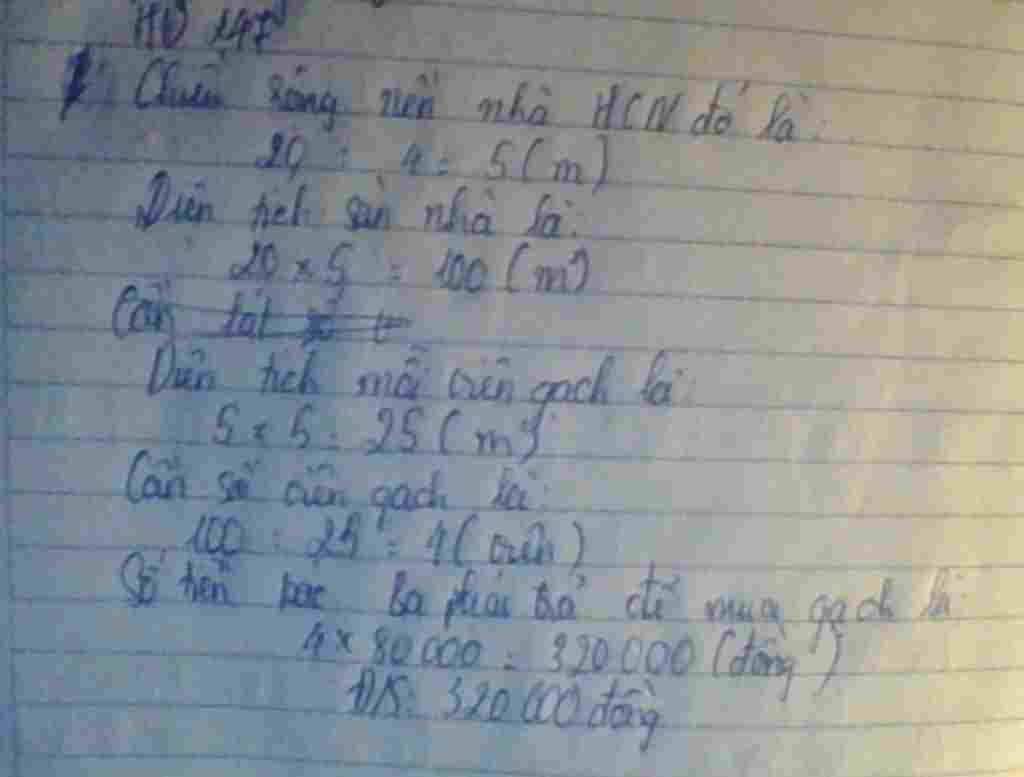 Chiều rộng nền nhà HCN đó là:
20 : 4 = 5 (m)
Diện tích sàn nhà là:
20 × 5 = 100 (m²)
Cần
Diện tích mỗi viên gạch là:
5 × 5 = 25 (m²)
Cần số viên gạch là:
100 : 25 = 4 (viên)
Số tiền bác Ba phải trả để mua gạch là
4 × 80 000 = 320 000 (đồng)
Đ/S: 320 000 đồng